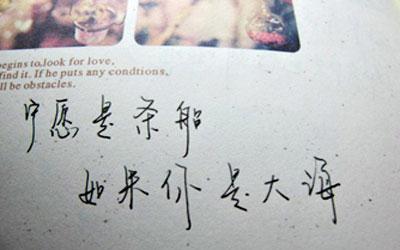 begins to.look for love,
find it. If he puts any condtions,
ll be obstacles.
宁愿是条船
如果你是大海